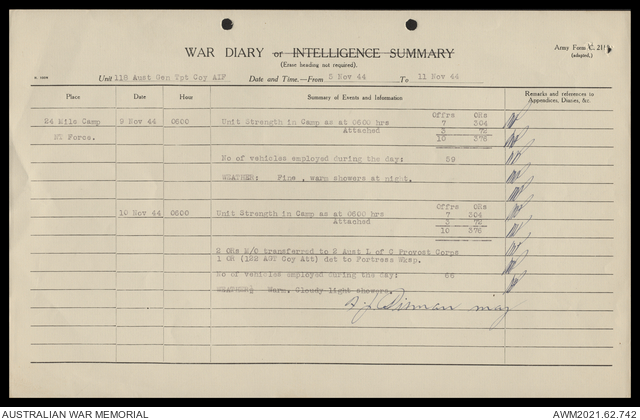 WAR DIARY or INTELLIGENCE SUMMARY
(Erase heading not required).
Army Form C. 2118
(adapted.)
Unit 118 Aust Gen Tpt Coy AIF Date and Time.—From 5 Nov 44 To 11 Nov 44
Place Date Hour Summary of Events and Information Remarks and references in Appendices, Diaries, &c.
Offrs ORs
24 Mile Camp 9 Nov 44 0600 Unit Strength in Camp as at 0600 hrs 7 304
Attached 3 72
NT Force. 10 376
No of vehicles employed during the day: 59
WEATHER: Fine , warm showers at night.
Offrs ORs
10 Nov 44 0600 Unit Strength in Camp as at 0600 hrs 7 304
Attached 3 72
10 376
2 ORs M/O transferred to 2 Aust L of C Provost Corps
1 OR (122 AGT Coy Att) det to Fortress Wksp.
No of vehicles employed during the day: 66
WEATHER: Warm. Cloudy light showers.
Maj
AUSTRALIAN WAR MEMORIAL AWM2021.62.742